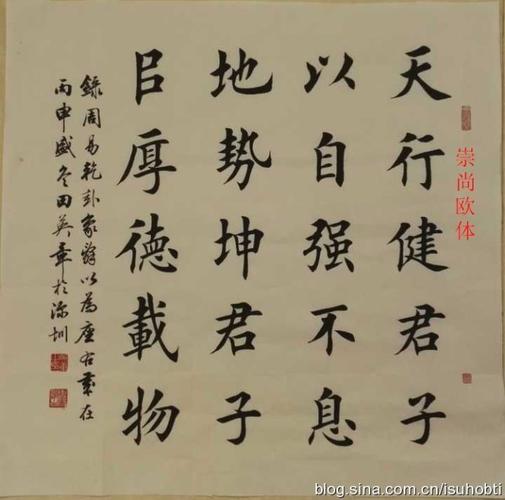 天行健君子
以自强不息
地勢坤君子
㠯厚德載物
錄周易乾卦象辭以為座右歲在
丙申盛冬田英章於深圳
崇尚欧体
blog.sina.com.cn/isuhobti